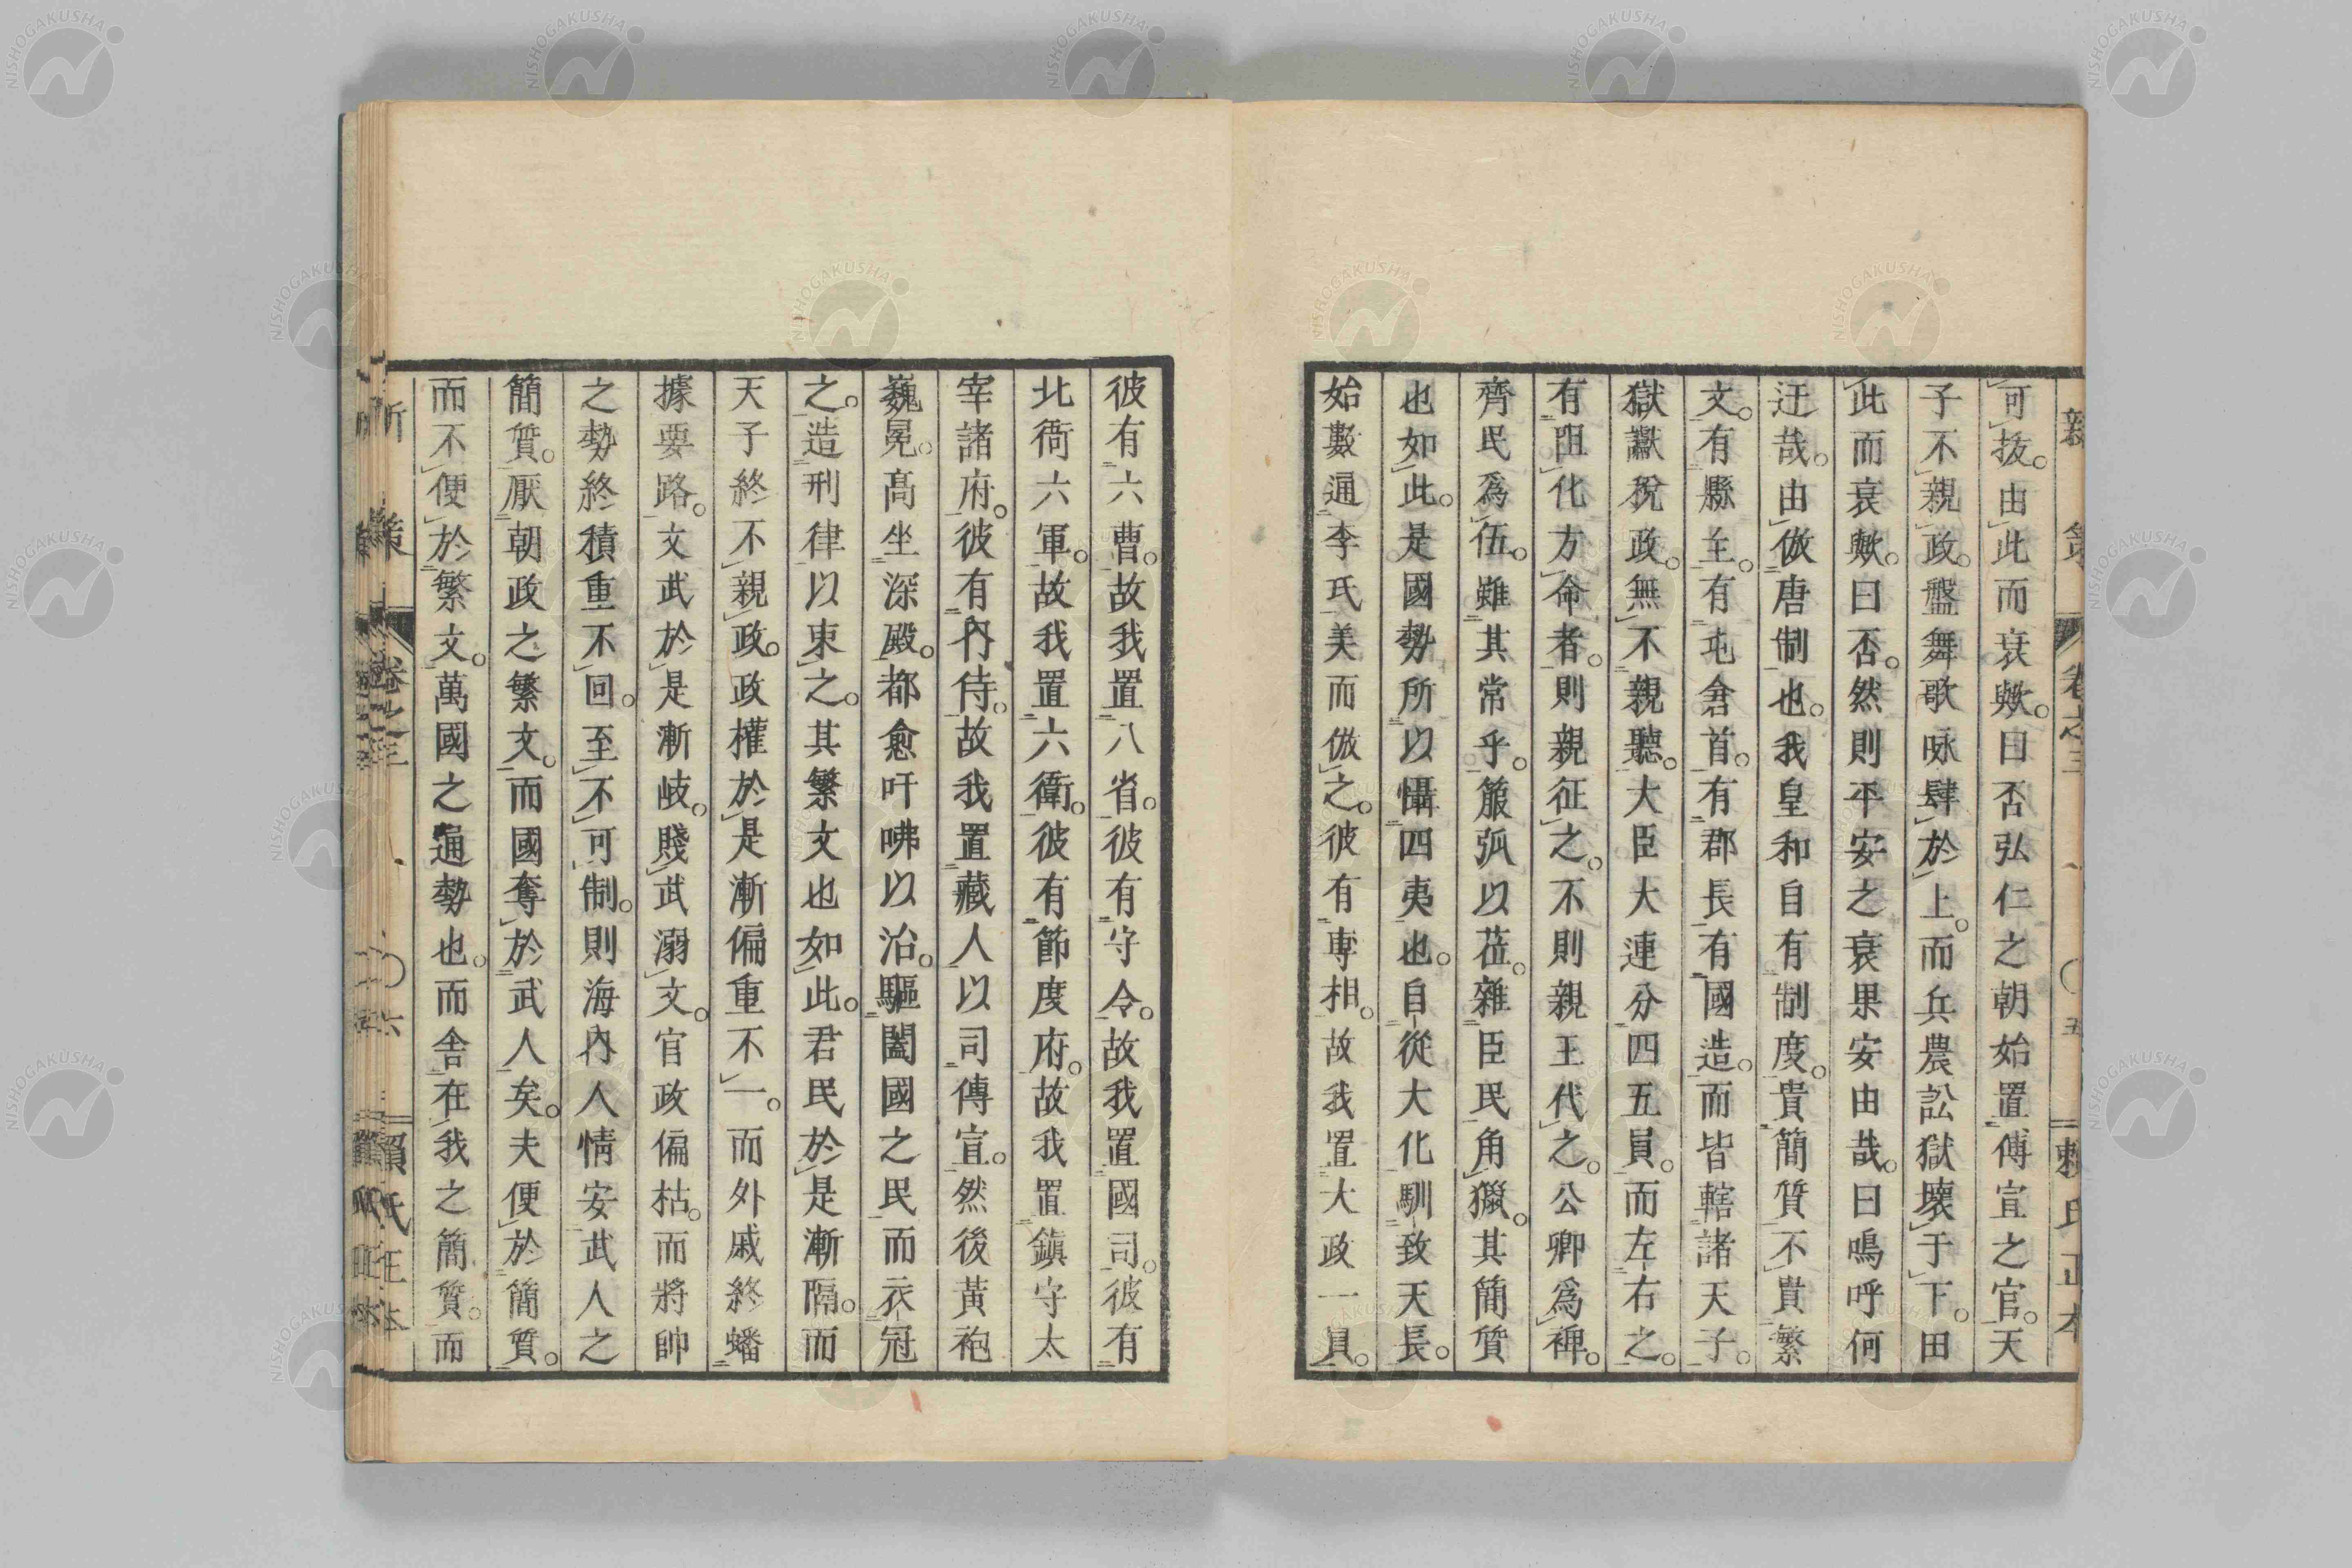 新 策 卷之三 〇五 賴氏正本
可抜。由此而衰歟。曰否弘仁之朝始置傳宣之官。天
子不親政。盤舞歌咏肆於上。而兵農訟獄壊于下。田
此而衰歟。曰否。然則平安之衰果安由哉。曰鳴呼何
迂哉。由倣唐制也。我皇和自有制度。貴簡質不貴繁
文。有縣主。有屯倉首。有郡長有國造。而皆轄諸天子。
獄讞稅政。無不親聽。大臣大連分四五員。而左右之。
有阻化方命者。則親征之。不則親王代之。公卿爲裨。
齊民爲伍。雖其常乎。箙弧以莅。雜臣民角獵。其簡質
也如此。是國勢所以懾四夷也。自從大化馴致天長。
始數通李氏美而倣之。彼有專相。故我置大政一員。
彼有六曹。故我置八省。彼有守令。故我置國司。彼有
北衙六軍。故我置六衛。彼有節度府。故我置鎮守太
宰諸府。彼有內侍。故我置藏人以司傳宣。然後黃袍
巍冕。高坐深殿。都兪吁咈以治。驅闔國之民而衣冠
之。造刑律以束之。其繁文也如此。君民於是漸隔。而
天子終不親政。政權於是漸偏重不一。而外戚終蟠
據要路。文武於是漸岐。賤武溺文。官政偏枯。而將帥
之勢終積重不回。至不可制。則海內人情安武人之
簡質。厭朝政之繁文。而國奪於武人矣。夫便於簡質。
而不便於繁文。萬國之通勢也。而舍在我之簡質。而
新 策 卷之三 〇六 賴氏正本
NISHOGAKUSHA